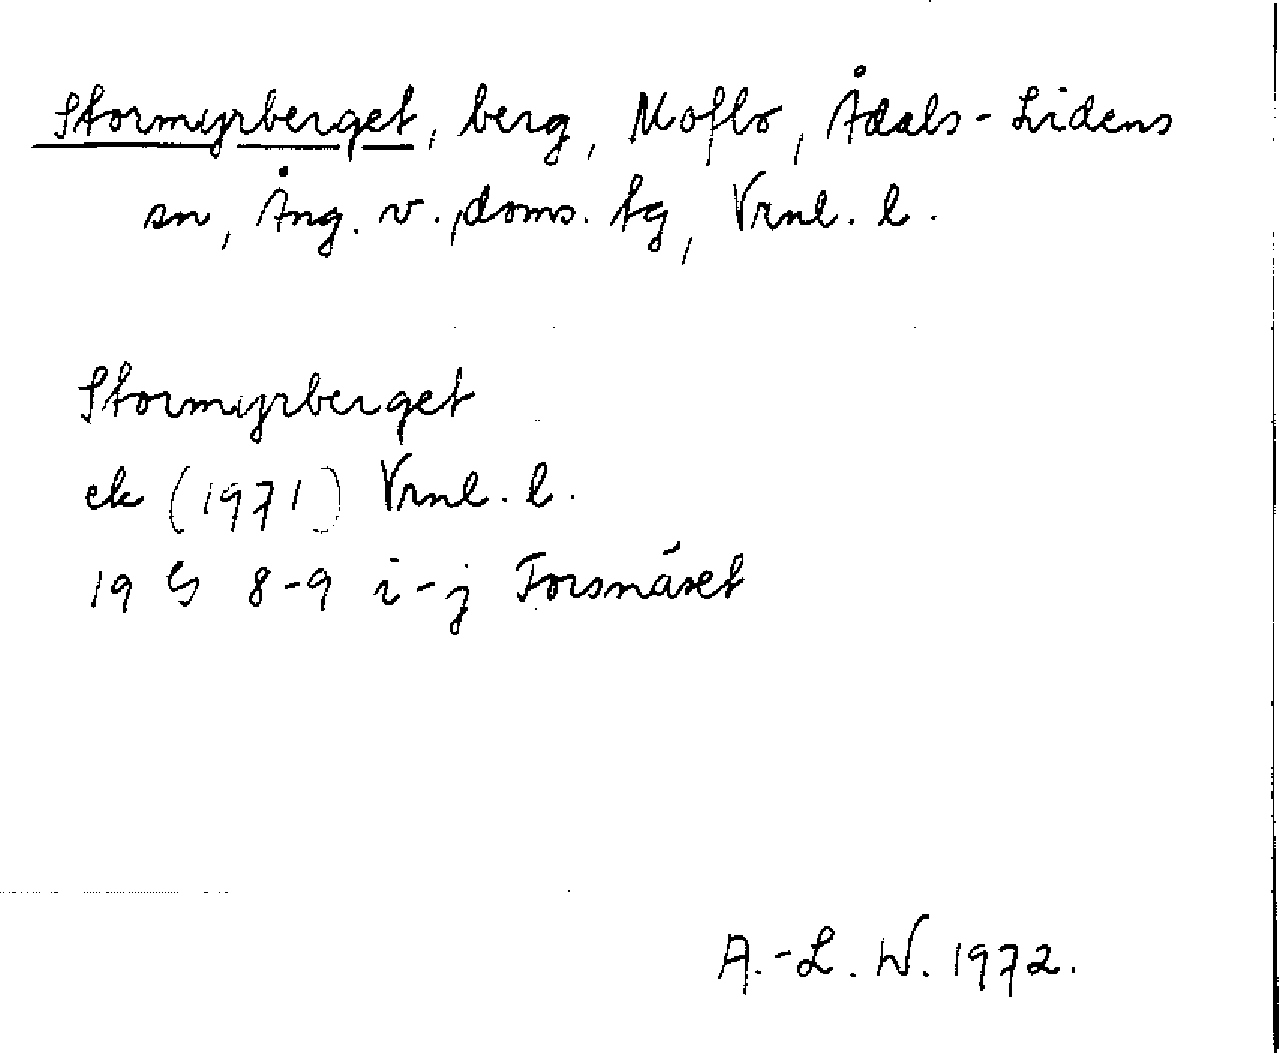 Stormyrberget, berg, Moflo, Ådals-Lidens
sn, Ång. v. doms. tg, Vrnl. l.
Stormyrberget
ek (1971) Vrnl. l.
19 G 8-9 i-j Forsnäset
A.-L. W. 1972.